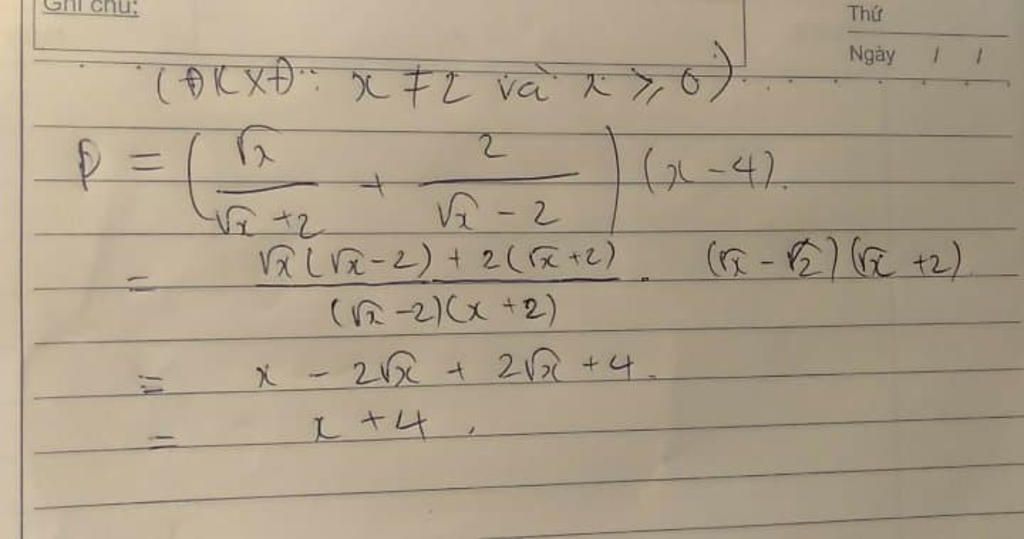 Ghi chú:
Thứ
Ngày / /
(ĐKXĐ: x ≠ 2 và x ≥ 0)
P = (√x / (√x + 2) + 2 / (√x - 2)) (x - 4).
= (√x(√x - 2) + 2(√x + 2)) / ((√x - 2)(x + 2)) . (√x - √2)(√x + 2)
= x - 2√x + 2√x + 4.
= x + 4.